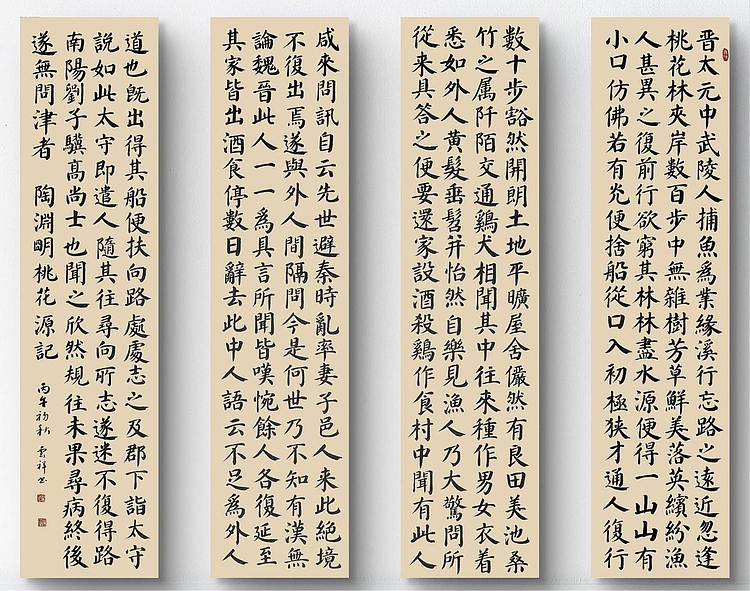 晋太元中武陵人捕魚爲業緣溪行忘路之遠近忽逢
桃花林夾岸數百步中無雜樹芳草鮮美落英繽紛漁
人甚異之復前行欲窮其林林盡水源便得一山山有
小口仿佛若有光便捨船從口入初極狹才通人復行
數十步豁然開朗土地平曠屋舍儼然有良田美池桑
竹之属阡陌交通鷄犬相聞其中往来種作男女衣着
悉如外人黄髮垂髫并怡然自樂見漁人乃大驚問所
從来具答之便要還家設酒殺鷄作食村中聞有此人
咸来問訊自云先世避秦時亂率妻子邑人来此絶境
不復出焉遂與外人間隔問今是何世乃不知有漢無
論魏晉此人一一爲具言所聞皆嘆惋餘人各復延至
其家皆出酒食停數日辭去此中人語云不足爲外人
道也既出得其船便扶向路處處志之及郡下詣太守
説如此太守即遣人隨其往尋向所志遂迷不復得路
南陽劉子驥高尚士也聞之欣然規往未果尋病終後
遂無問津者 陶淵明桃花源記 丙午初秋